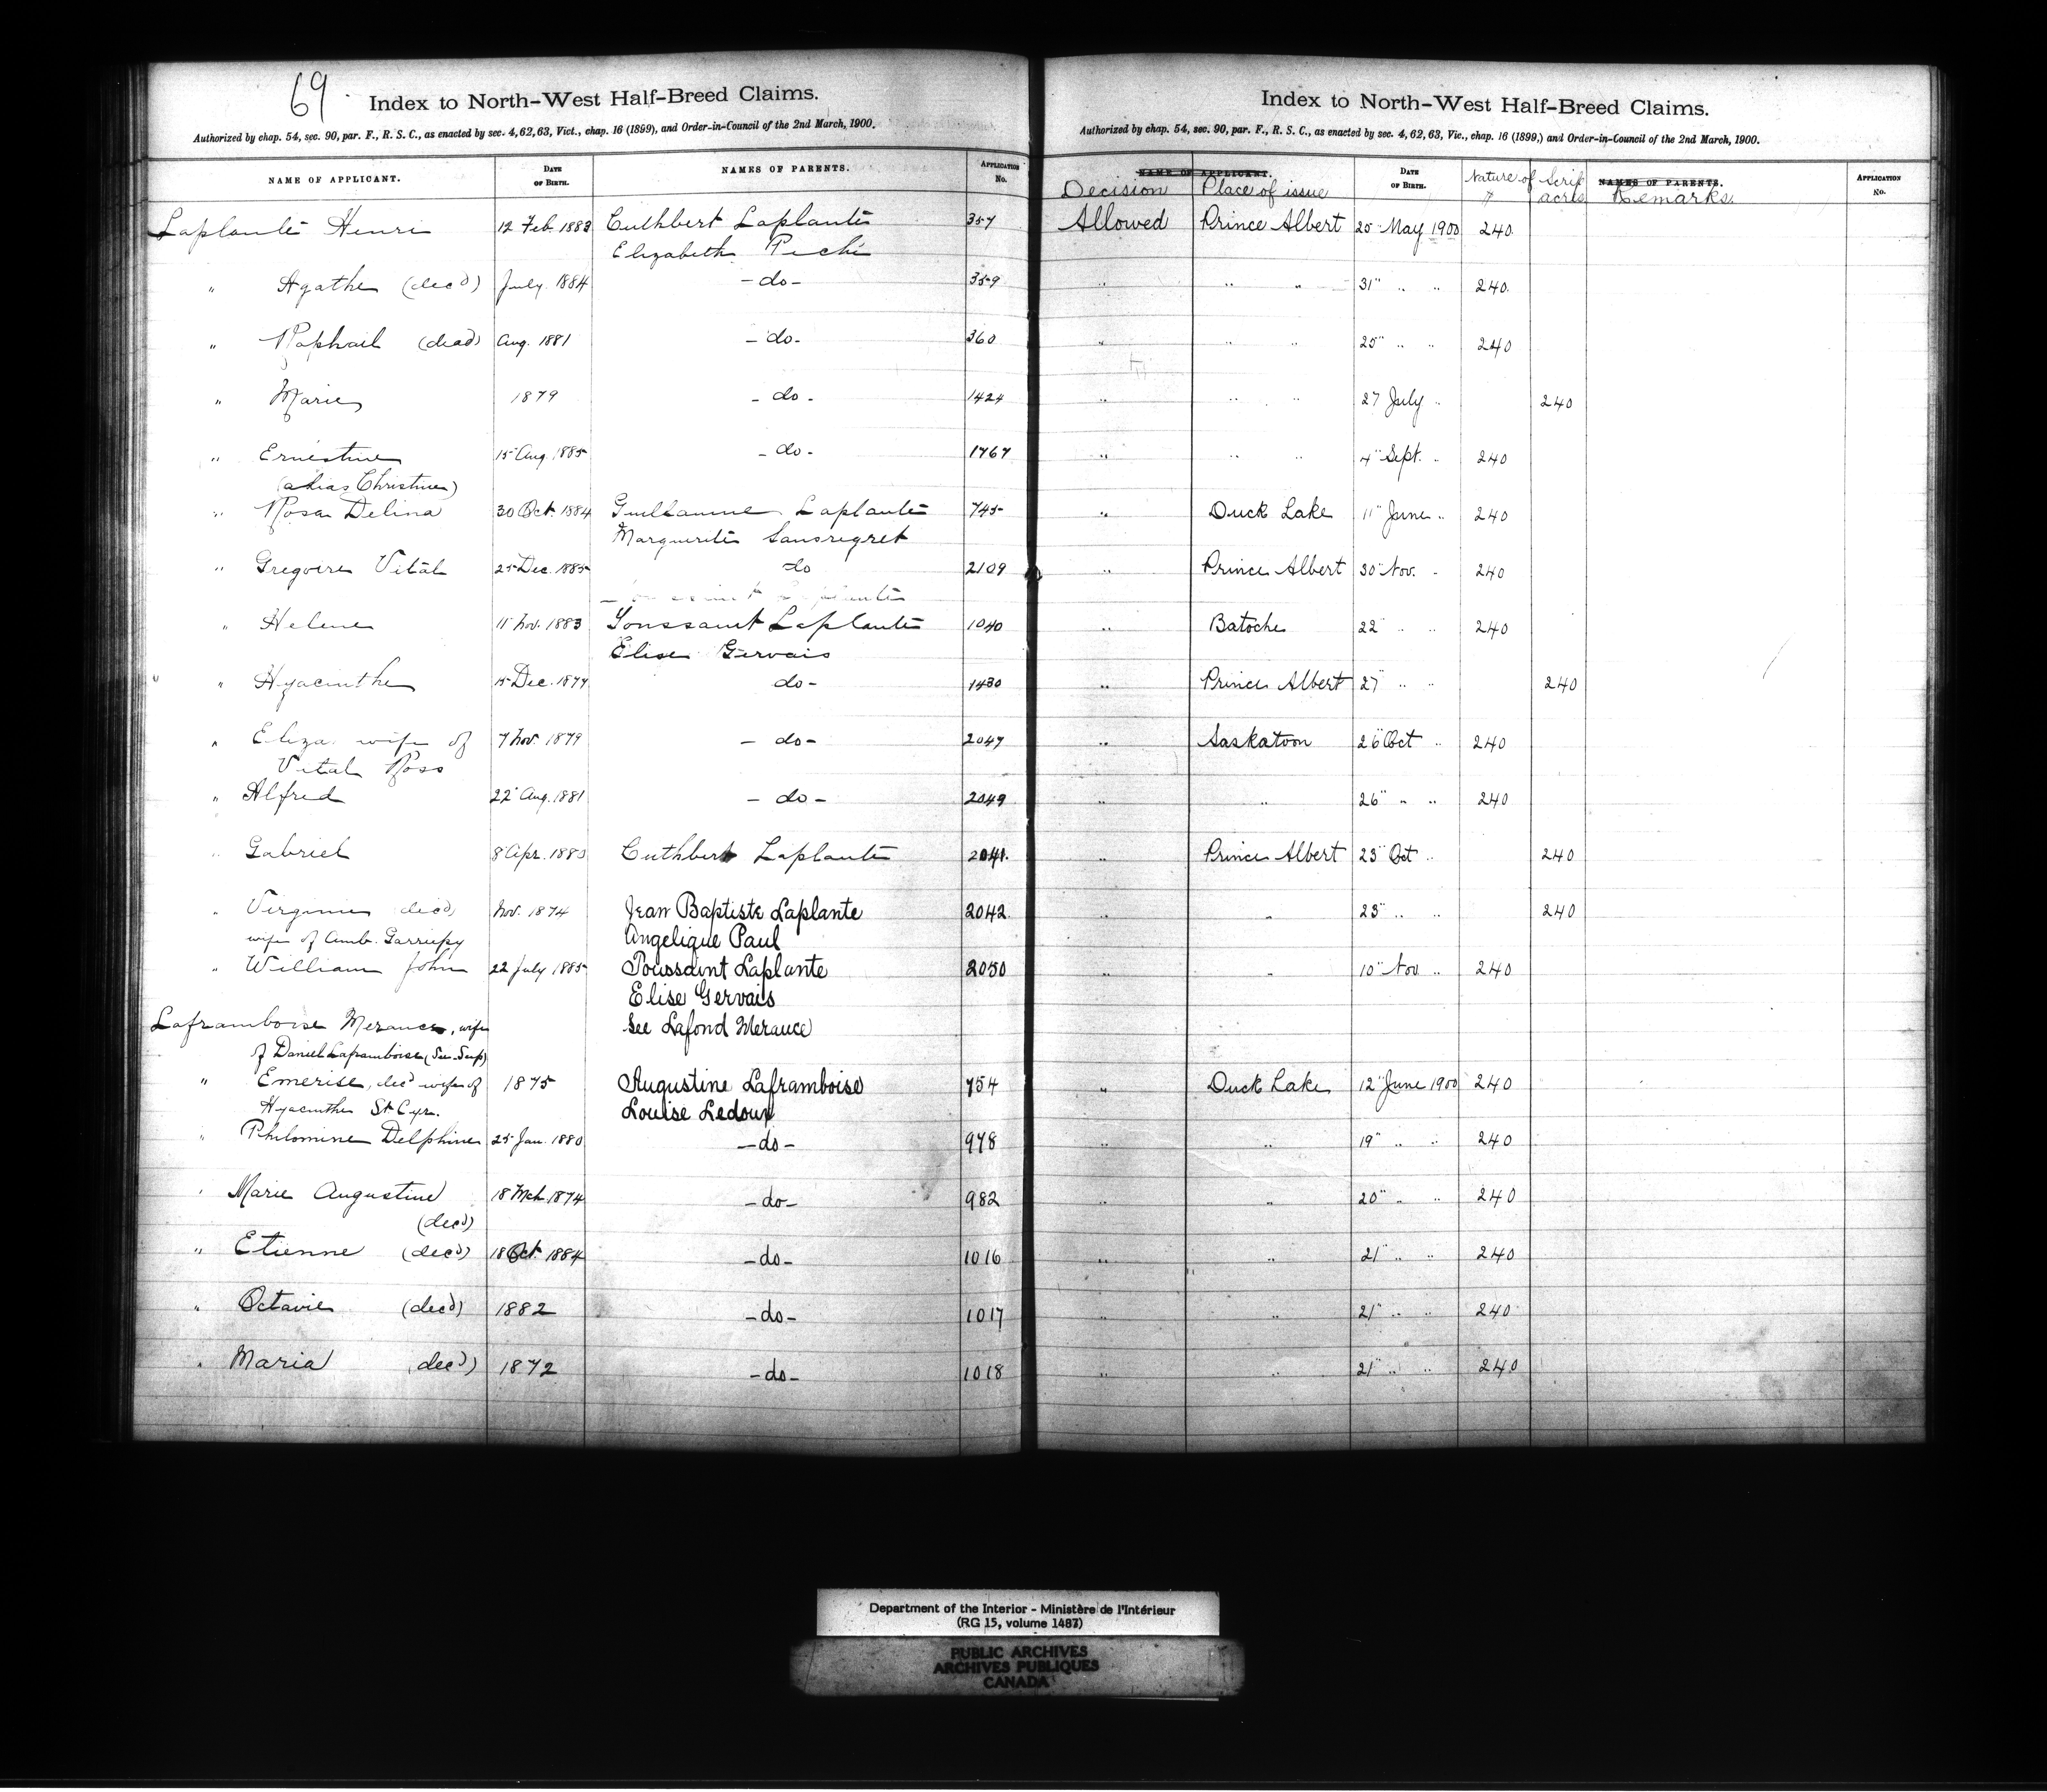 69
Index to North-West Half-Breed Claims.
Authorized by chap. 54, sec. 90, par. F., R. S. C., as enacted by sec. 4, 62, 63, Vict., chap. 16 (1899), and Order-in-Council of the 2nd March, 1900.
NAME OF APPLICANT. DATE OF BIRTH. NAMES OF PARENTS. APPLICATION No.
Index to North-West Half-Breed Claims.
Authorized by chap. 54, sec. 90, par. F., R. S. C., as enacted by sec. 4, 62, 63, Vic., chap. 16 (1899,) and Order-in-Council of the 2nd March, 1900.
NAME OF APPLICANT. DATE OF BIRTH. Nature of Scrip NAMES OF PARENTS. APPLICATION No.
Decision Place of issue $ acres Remarks
Laplante Henri 12 Feb. 1883 Cuthbert Laplante 357 Allowed Prince Albert 25" May 1900 240
Elizabeth Piché
" Agathe (dec'd) July 1884 -do- 359 " " " 31" " " 240
" Raphail (dead) Aug. 1881 -do- 360 " " " 25" " " 240
" Marie 1879 -do- 1424 " " " 27 July " 240
" Ernestine 15 Aug. 1885 -do- 1767 " " " 4" Sept. " 240
(alias Christine)
" Rosa Delina 30 Oct. 1884 Guillaume Laplante 745 " Duck Lake 11" June " 240
Marguerite Sansregret
" Gregoire Vital 25 Dec. 1885 do 2109 " Prince Albert 30" Nov. " 240
" Helene 11" Nov. 1883 Toussaint Laplante 1040 " Batoche 22" " " 240
Elise Gervais
" Hyacinthe 15 Dec. 1877 do- 1430 " Prince Albert 27" " " 240
" Eliza wife of 7 Nov. 1879 -do- 2047 " Saskatoon 26" Oct " 240
Vital Ross
" Alfred 22" Aug. 1881 -do- 2049 " " 26" " " 240
" Gabriel 8" Apr. 1883 Cuthbert Laplante 2041. " Prince Albert 23" Oct " 240
" Virginie dec'd, Nov. 1874 Jean Baptiste Laplante 2042 " " 23" " " 240
wife of Amb. Garriepy Angelique Paul
" William John 22 July 1885 Toussaint Laplante 2050 " " 10" Nov " 240
Elise Gervais
Laframboise Merance, wife See Lafond Merance
of Daniel Laframboise (See Sup)
" Emerise, dec'd wife of 1875 Augustine Laframboise 754 " Duck Lake 12" June 1900 240
Hyacinthe St Cyr. Louise Ledoux
" Philomine Delphine 25 Jan. 1880 -do- 978 " " 19" " " 240
" Marie Augustine 18 Mch 1874 -do- 982 " 20" " " 240
(dec'd)
" Etienne (dec'd) 18 Oct. 1884 -do- 1016 " " 21" " " 240
" Octavie (dec'd) 1882 -do- 1017 " " 21" " " 240
" Maria (dec'd) 1872 -do- 1018 " " 21" " " 240
Department of the Interior - Ministère de l'Intérieur
(RG 15, volume 1487)
PUBLIC ARCHIVES
ARCHIVES PUBLIQUES
CANADA